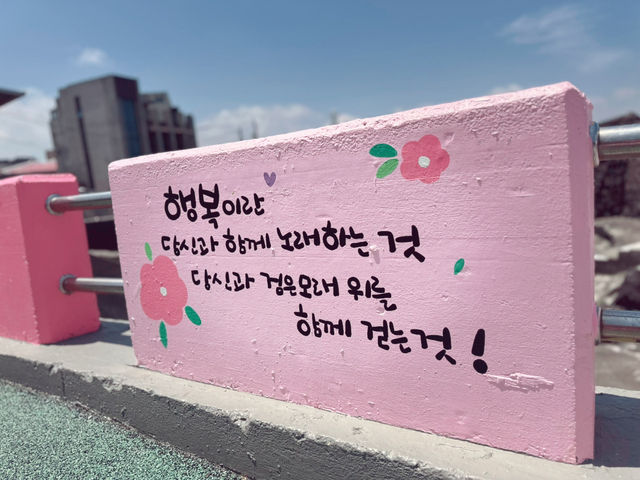 행복이란
당신과 함께 노래하는 것
당신과 검은모래 위를
함께 걷는것!